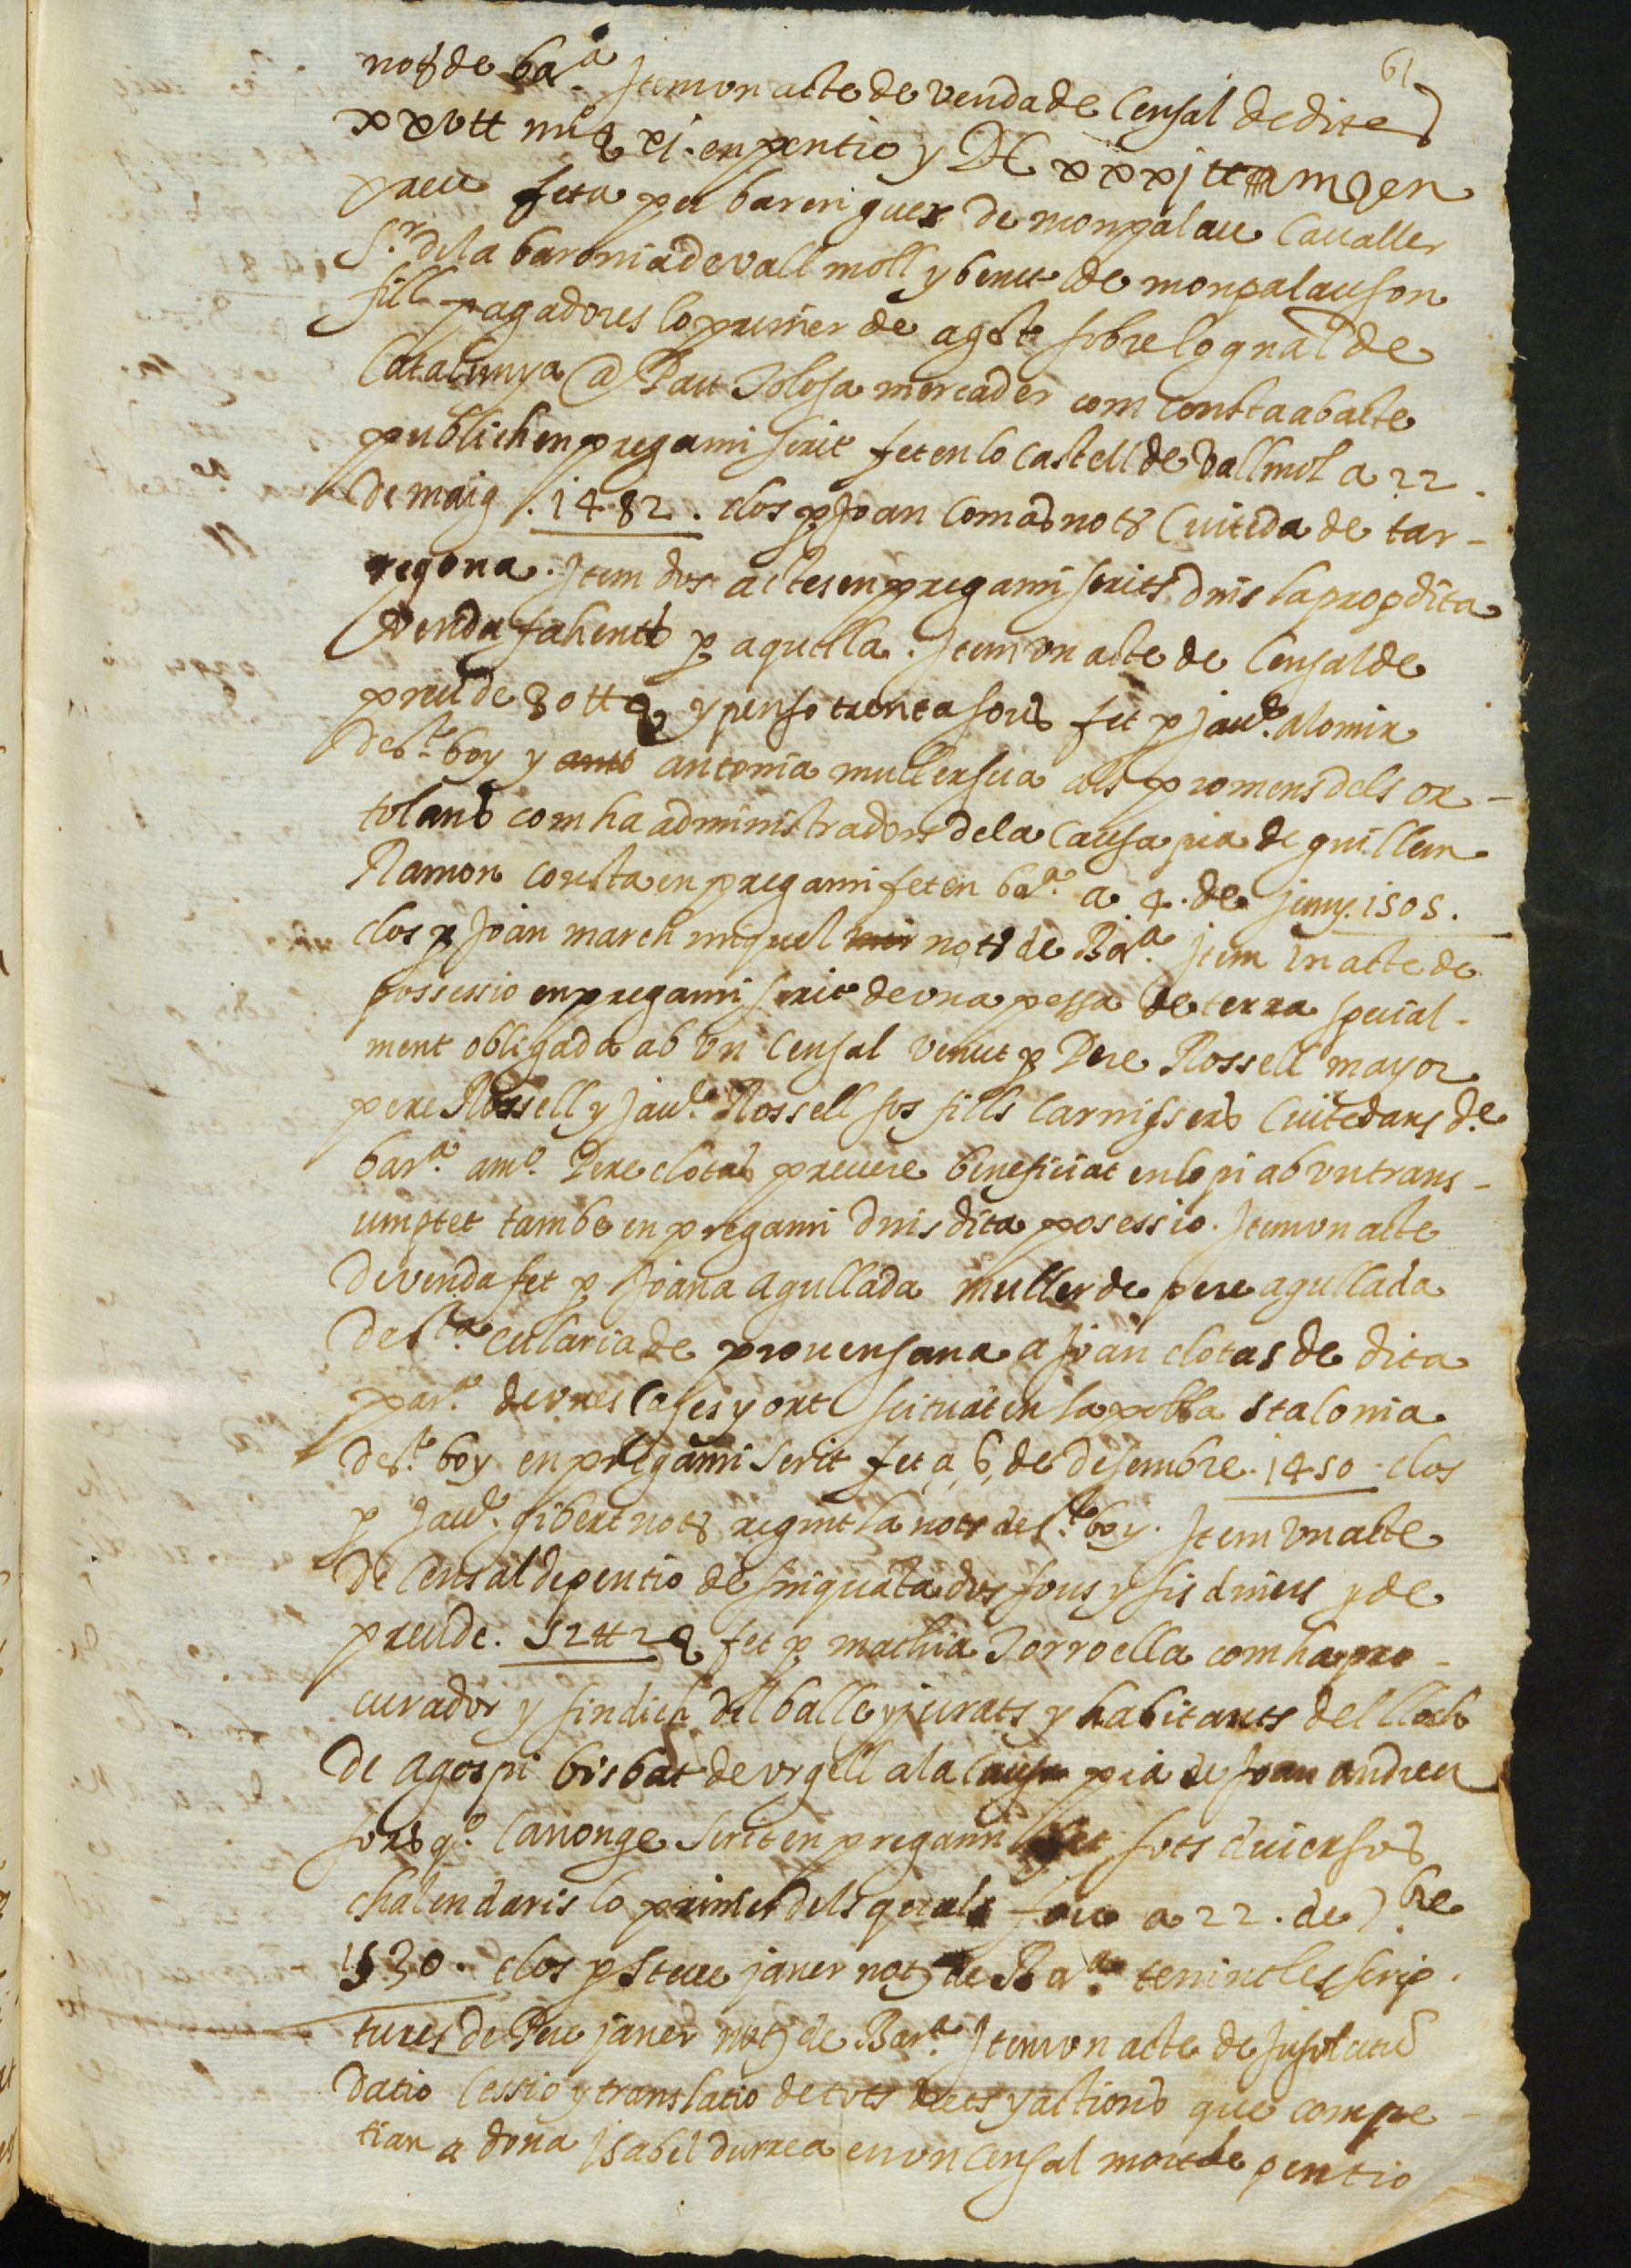 61
notʳ de baª. Item vn acte de venda de Censal de dites
xxv tt mig xj. en pentio y DC xxxj tt en
preu feta per barenguer de monpalau Caualler
Sʳ. dela baronia de vall moll y benet de monpalau son
fill pagadores lo primer de agost sobre lo gnãl de
Catalunya @ Pau Tolosa mercader com consta ab acte
publich en pregami scrit fet en lo castell de Vallmol a 22.
de maig . 1482 . clos p Joan Comas notʳ Ciutedà de tar-
regona . Item dos actes en pregami scrits dins la prop dita
Venda fahents p aquella . Item vn acte de Censal de
preu de 30 tt y penso trenta sous fet p jauᵉ. Alomir
de sᵗ. boy y antonia muller sua als promens dels or-
tolans com ha administradors dela Causa pia de guillem
Ramon consta en pregami fet en baª. a . 4 . de juny . 1505 .
clos p Joan march miquel notʳ de Baª. Item vn acte de
possessio en pregami scrit de vna pessa de terra special-
ment obligada ab vn Censal venut p Pere Rossell mayor
pere Rossell y jauᵉ. Rossell sos fills Carnissers Ciutedans de
barª. amº. Pere clotas preuere beneficiat en lo pi ab vn trans-
umptet tambe en pregami dins dita posessio . Item vn acte
de venda fet p Joana agullada muller de pere agullada
de sᵗª. eularia de prouensana a Joan clotas de dita
parª. de vnes Cases y ort scituat en la pobla stalonia
de sᵗ. boy en pregami scrit fet a 6 de desembre . 1450 . clos
p Jauᵉ. gibert notʳ regint la notʳ de sᵗ. boy . Item vn acte
de Censal de pentio de sinquata dos sous y sis diners y de
preu de . 52 tt 2 fet p mathia Torroella com ha pro-
curador y sindich del balle y jurats y habitants del lloch
de agospi bisbat de vrgell ala Causa pia de Joan andreu
sors qº. Canonge scrit en pregami sots diuersos
chalendaris lo primer dels quals fou a 22 . de 7bre
1530 . clos p Steue janer notʳ de Baª. tenint les scrip-
tures de Pere janer notʳ de Barª. Item vn acte de Insolutũ
datio Cessio y translatio de tots drets y actions que compe-
tian a dona Isabel durrea en vn Censal mort de pentio